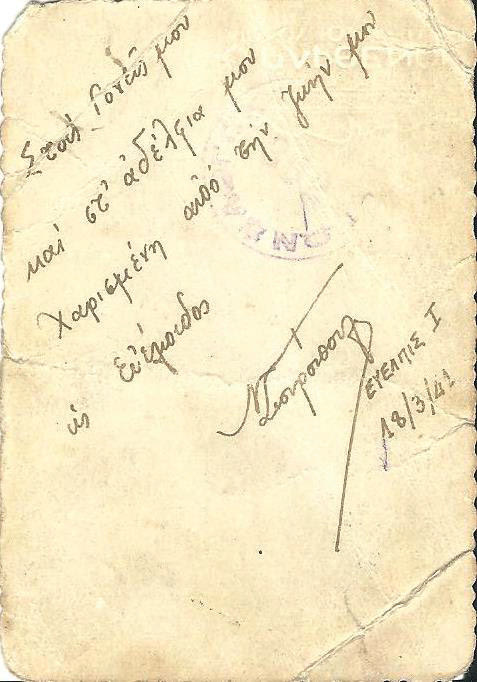 Στούς Γονεῖς μου
καί στ' ἀδέλφια μου
Χαρισμένη ἀπό τήν ζωήν μου
ὡς Εὐέλπιδος
ΕΥΕΛΠΙΣ Ι
18/3/42